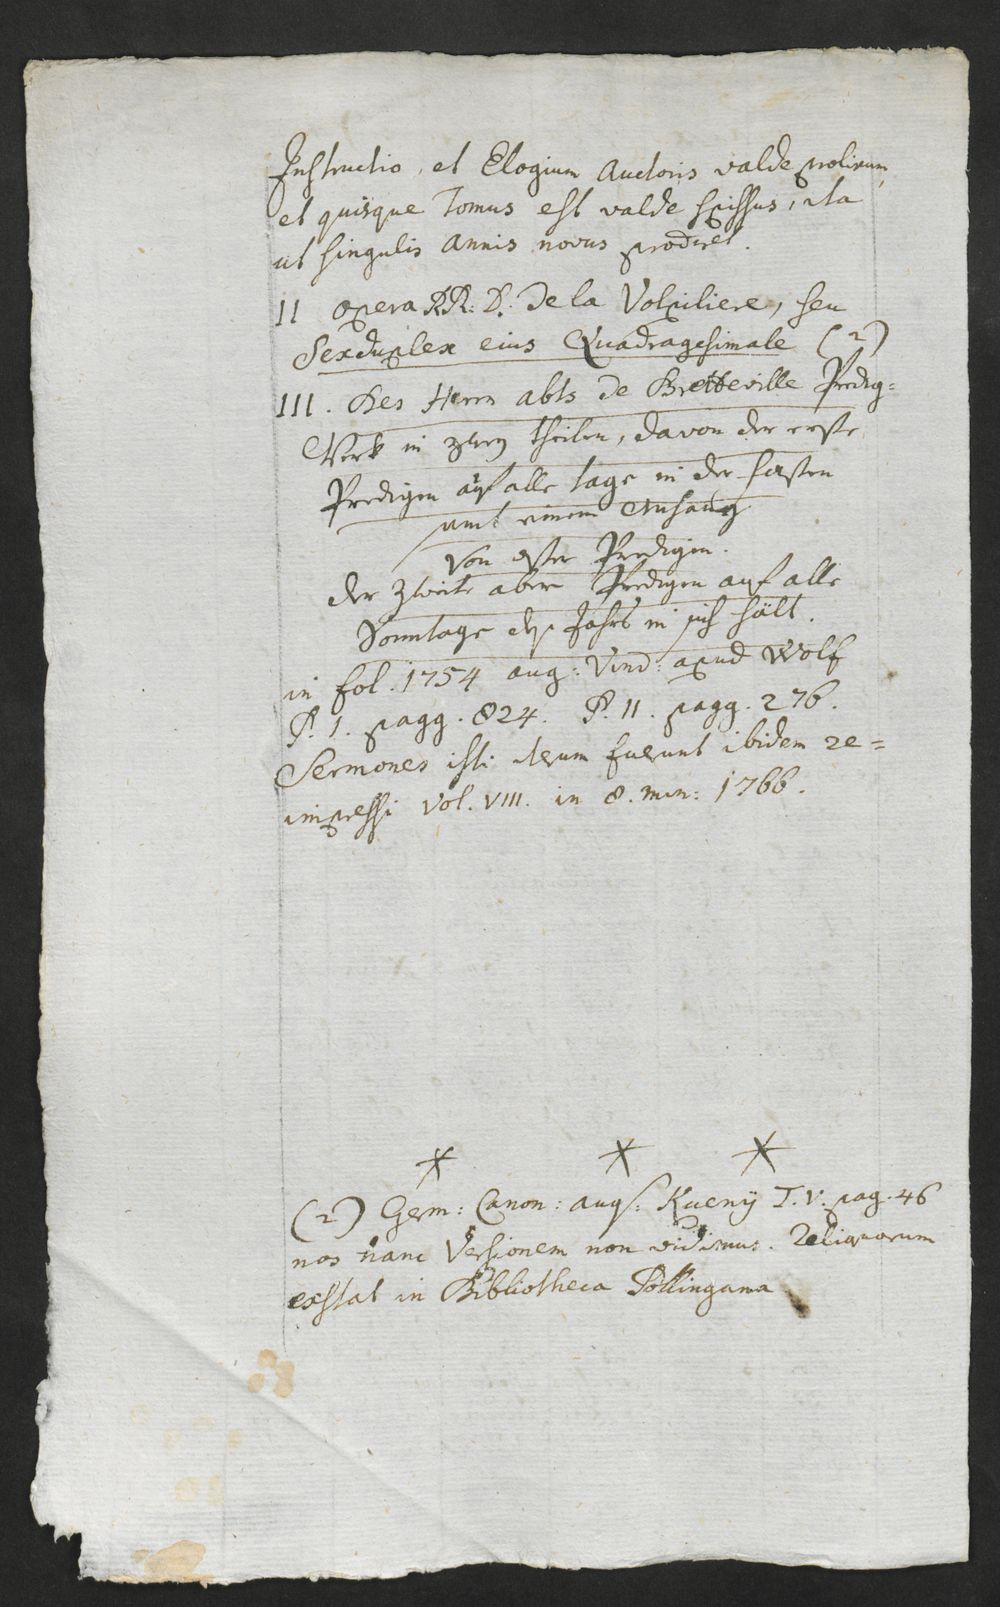 Instructio, et Elogium Auctoris valde prolixum,
et quisque Tomus est valde spissus, ita
ut singulis Annis novus prodiret.
II opera RR: D: De la Volpiliere, seu
Sexduplex eius Quadragesimale (2)
III. Des Herrn abts de Bretteville Predig=
Werk in zwey theilen, davon der erste
Predigen auf alle tage in der fasten
samt einem Anhang
von oster Predigen.
der zweite aber Predigen auf alle
Sonntage des Jahrs in sich hält.
in fol. 1754 aug: Vind: apud Wolf
P. I. pagg. 824. P. II. pagg. 276.
Sermones isti iterum fuerunt ibidem re=
impressi Vol. VIII. in 8. min: 1766.
(2) Germ: Canon: aug: Kueny T. V. pag. 46
nos hanc Versionem non vidimus. Reliquorum
exstat in Bibliotheca Pollingana